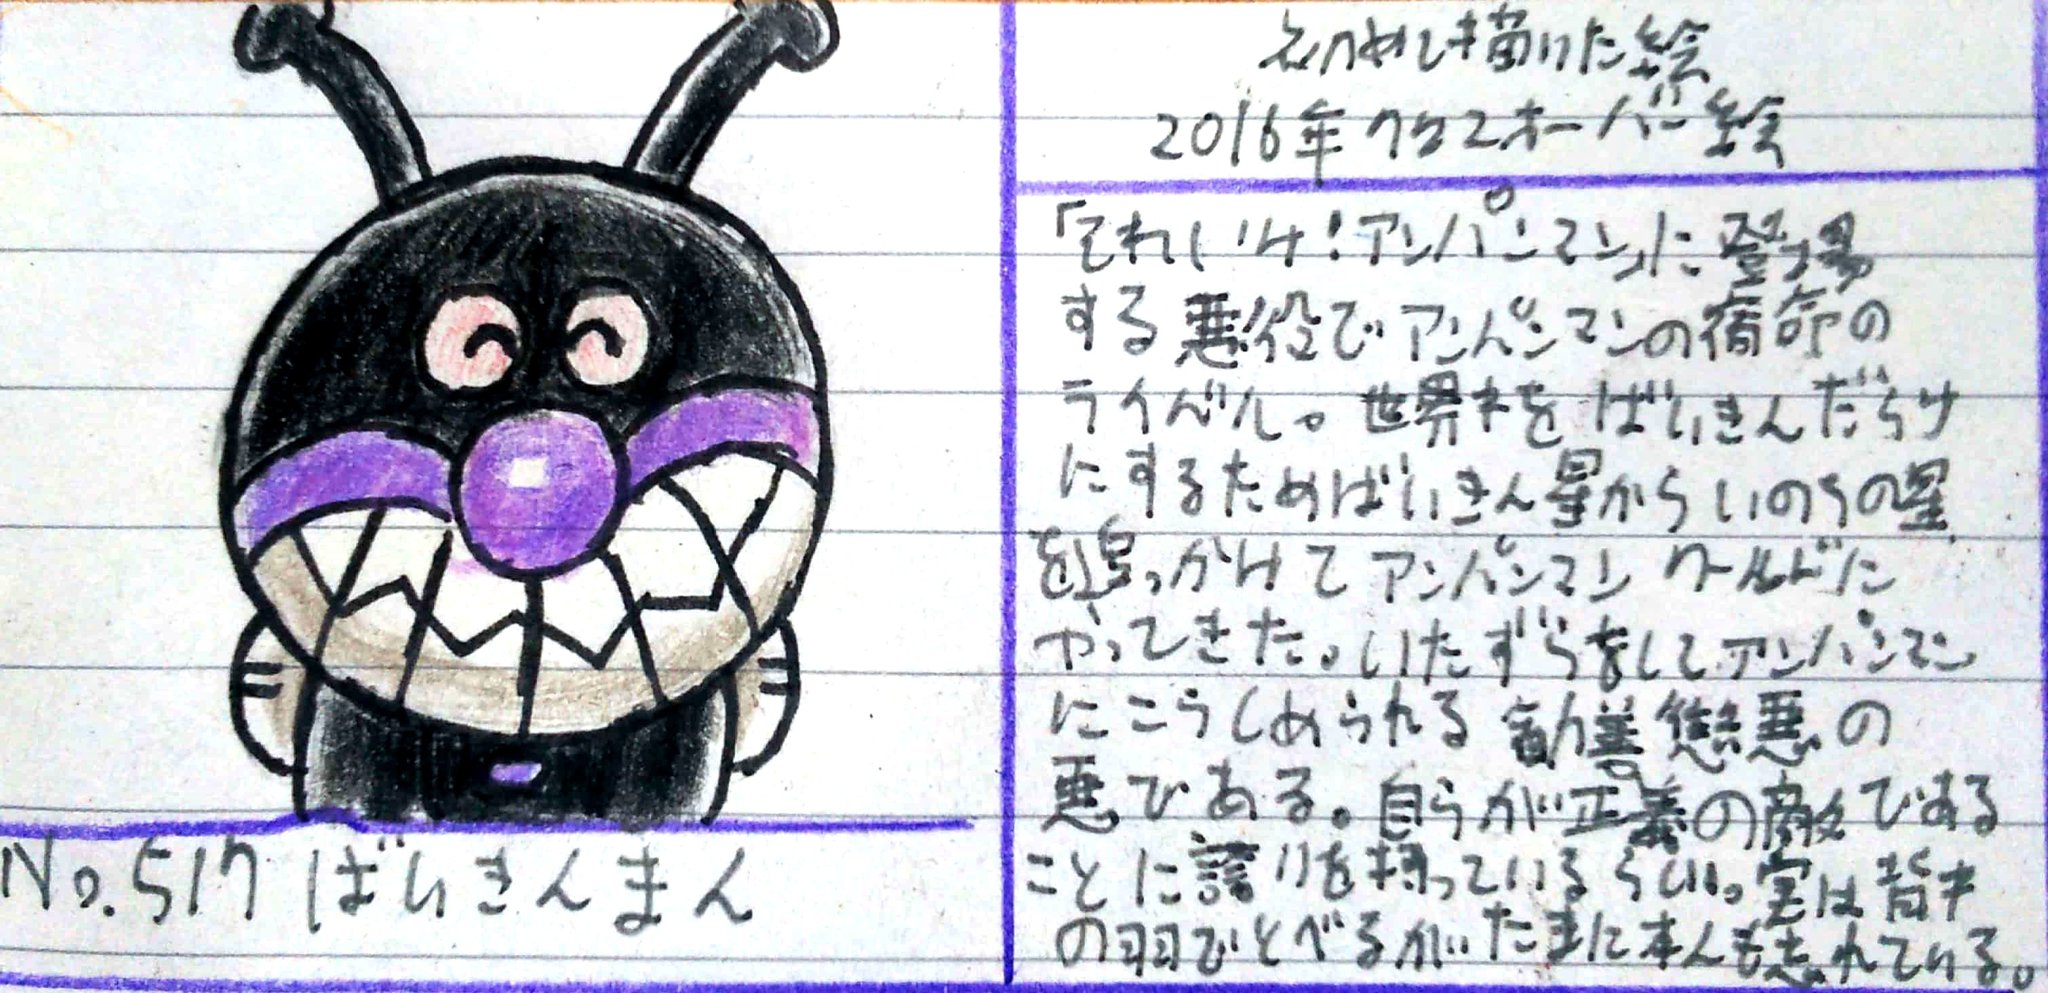 初めて描けた絵
2016年クロスオーバー絵
「それいけ!アンパンマン」に登場
する悪役でアンパンマンの宿命の
ライバル。世界中をばいきんだらけ
にするためばいきん星からいのちの星
を追っかけてアンパンマンワールドに
やってきた。いたずらをしてアンパンマン
にこらしめられる勧善懲悪の
悪である。自らが正義の敵である
ことに誇りを持っているらしい。実は背中
の羽でとべるがたまに本人も忘れている。
No.517 ばいきんまん